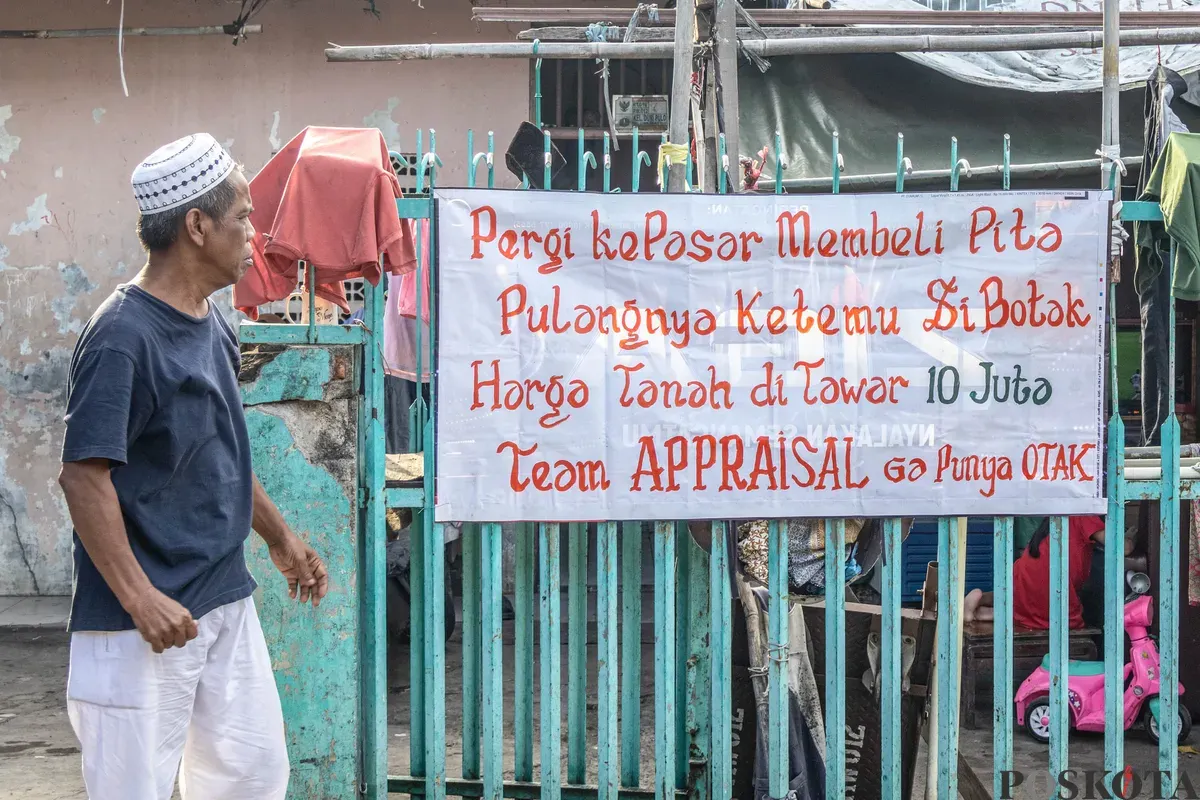 Pergi kePasar Membeli Pita
Pulangnya Ketemu Si Botak
Harga Tanah di Tawar 10 Juta
Team APPRAISAL Ga Punya OTAK
NYALAKAN SEMANGATMU
POSKOTA